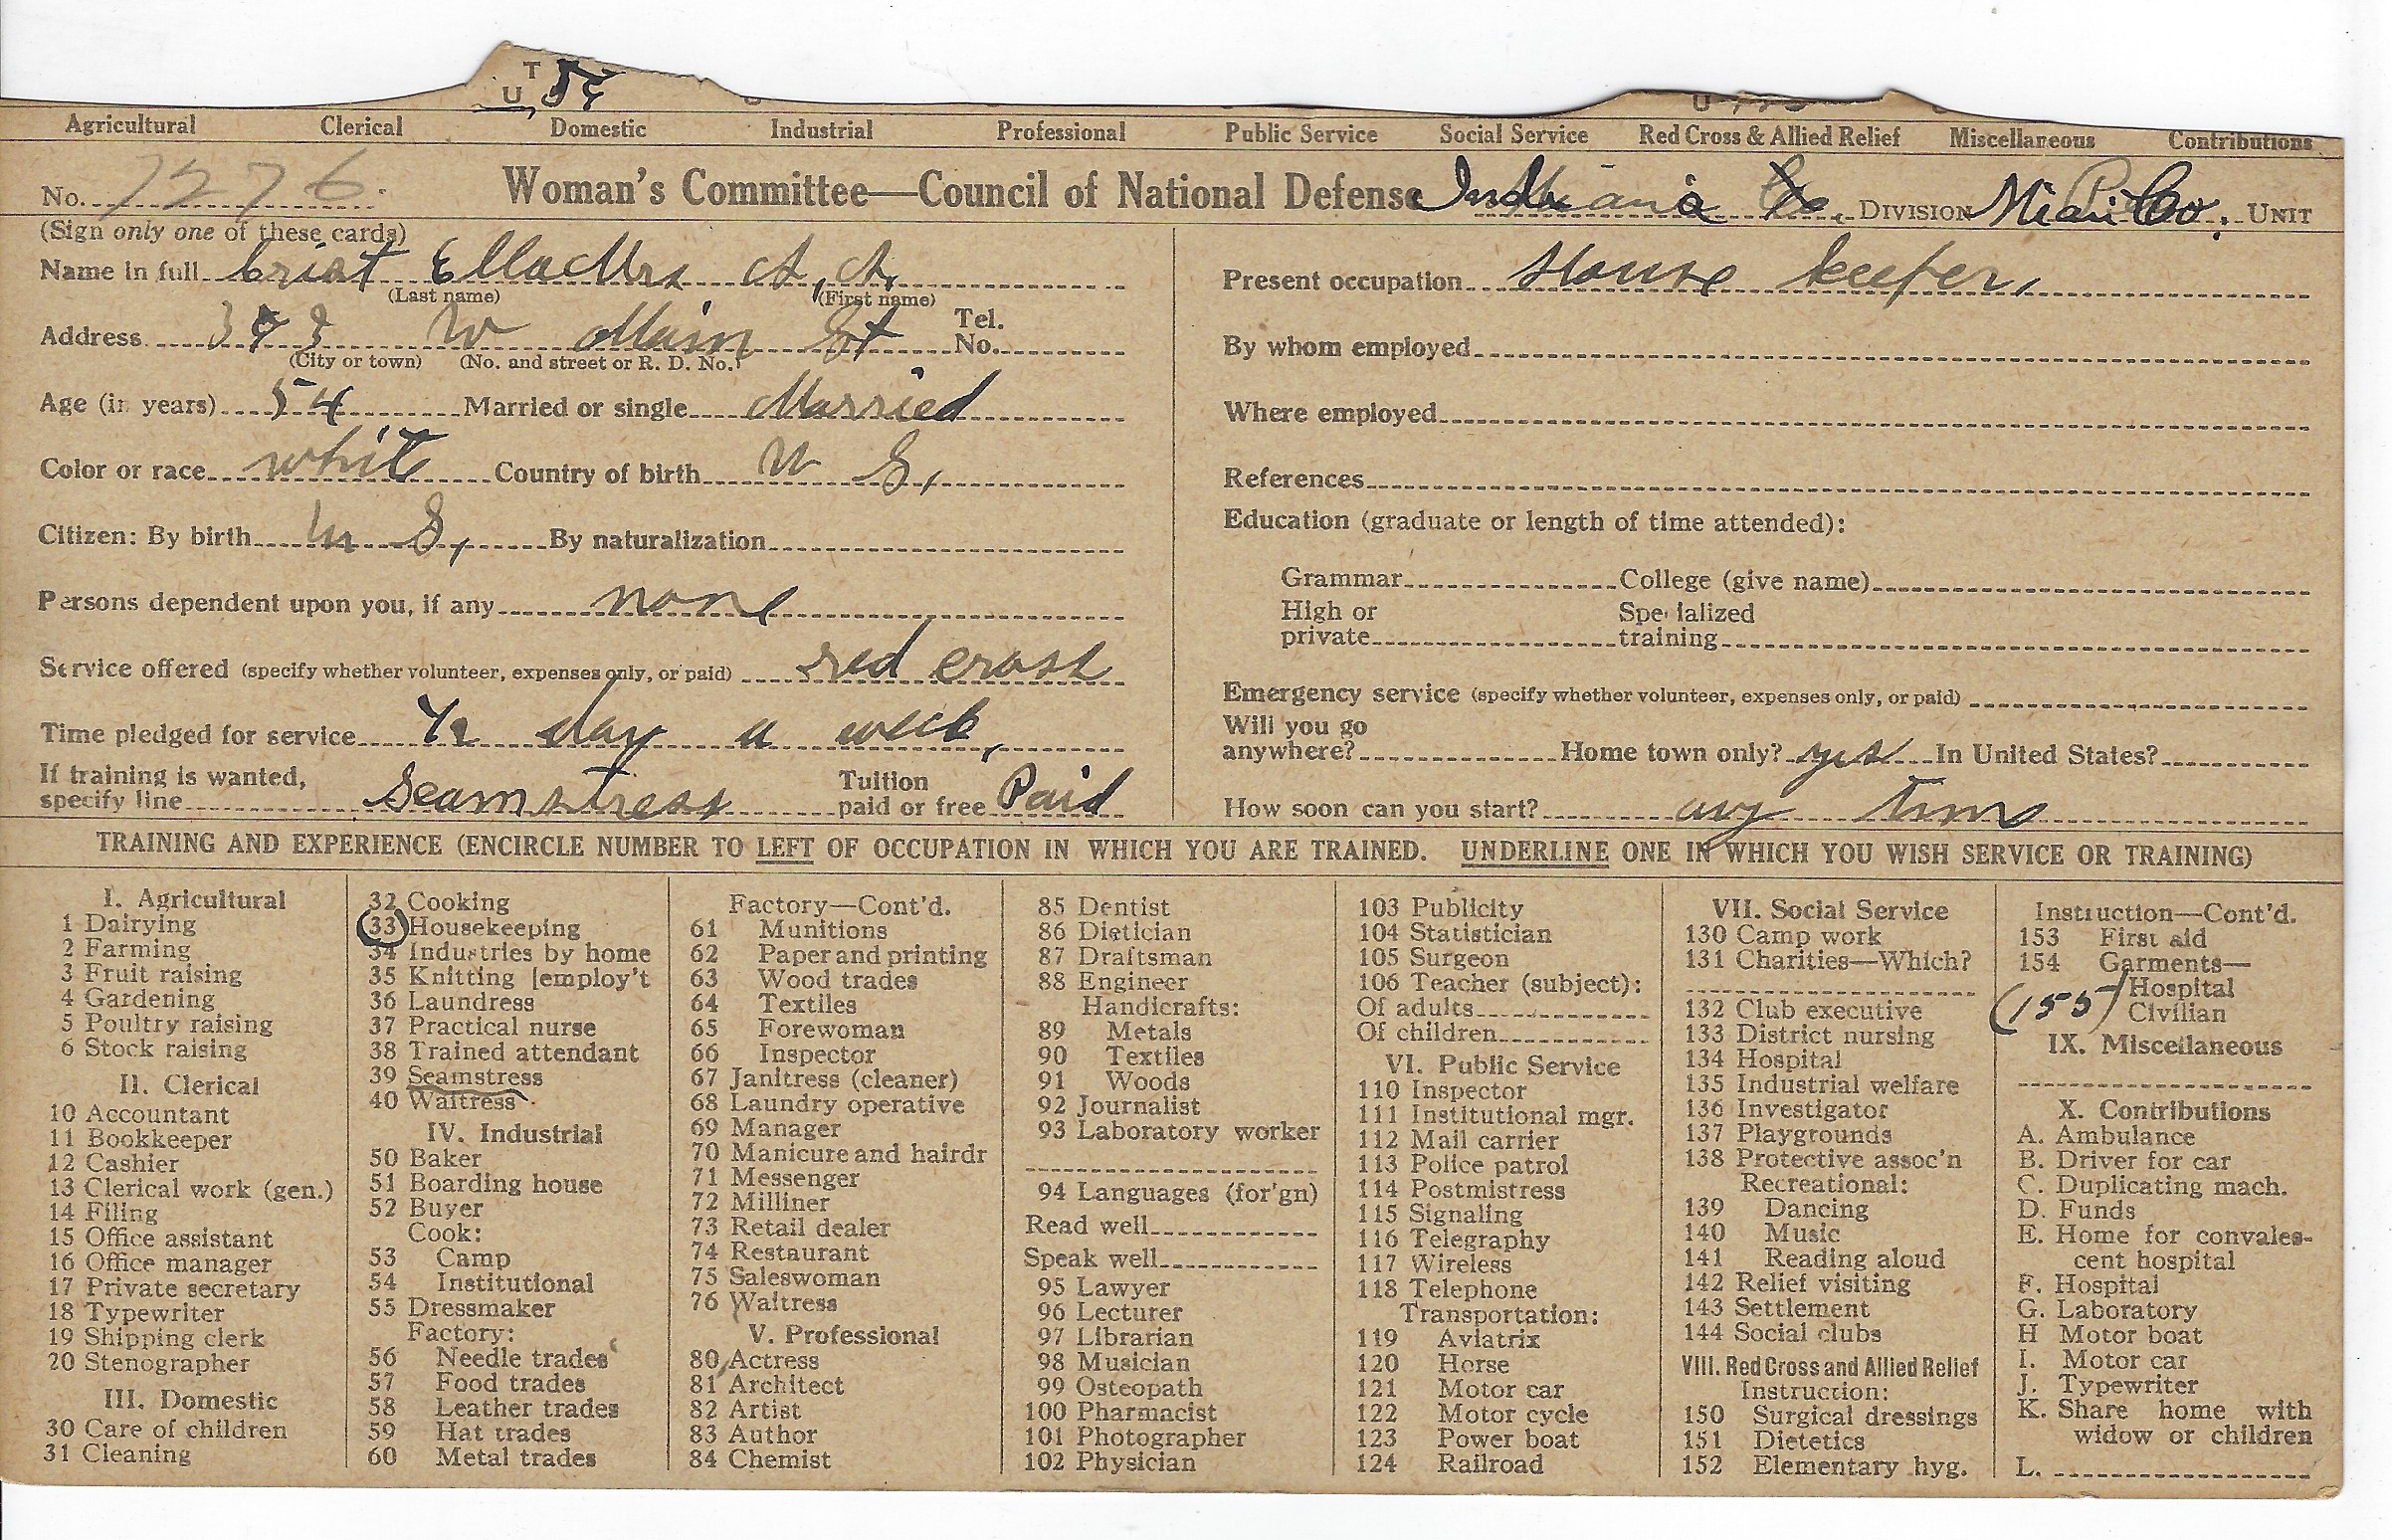 T
U
Agricultural Clerical Domestic Industrial Professional Public Service Social Service Red Cross & Allied Relief Miscellaneous Contributions
No. 7276 Woman's Committee—Council of National Defense Indiana DIVISION Miami Co. UNIT
(Sign only one of these cards)
Name in full Crist Ella Mrs A. A.
(Last name) (First name)
Address W Main St Tel. No.
(City or town) (No. and street or R. D. No.)
Age (in years) 54 Married or single Married
Color or race white Country of birth U S,
Citizen: By birth U S, By naturalization
Persons dependent upon you, if any none
Service offered (specify whether volunteer, expenses only, or paid) red cross
Time pledged for service 1/2 day a week,
If training is wanted, specify line Seamstress Tuition paid or free Paid
Present occupation House keeper,
By whom employed
Where employed
References
Education (graduate or length of time attended):
Grammar College (give name)
High or private Specialized training
Emergency service (specify whether volunteer, expenses only, or paid)
Will you go anywhere? Home town only? yes In United States?
How soon can you start? any time
TRAINING AND EXPERIENCE (ENCIRCLE NUMBER TO LEFT OF OCCUPATION IN WHICH YOU ARE TRAINED. UNDERLINE ONE IN WHICH YOU WISH SERVICE OR TRAINING)
I. Agricultural
1 Dairying
2 Farming
3 Fruit raising
4 Gardening
5 Poultry raising
6 Stock raising
II. Clerical
10 Accountant
11 Bookkeeper
12 Cashier
13 Clerical work (gen.)
14 Filing
15 Office assistant
16 Office manager
17 Private secretary
18 Typewriter
19 Shipping clerk
20 Stenographer
III. Domestic
30 Care of children
31 Cleaning
32 Cooking
33 Housekeeping
34 Industries by home
35 Knitting [employ't
36 Laundress
37 Practical nurse
38 Trained attendant
39 Seamstress
40 Waitress
IV. Industrial
50 Baker
51 Boarding house
52 Buyer
Cook:
53 Camp
54 Institutional
55 Dressmaker
Factory:
56 Needle trades
57 Food trades
58 Leather trades
59 Hat trades
60 Metal trades
Factory—Cont'd.
61 Munitions
62 Paper and printing
63 Wood trades
64 Textiles
65 Forewoman
66 Inspector
67 Janitress (cleaner)
68 Laundry operative
69 Manager
70 Manicure and hairdr
71 Messenger
72 Milliner
73 Retail dealer
74 Restaurant
75 Saleswoman
76 Waitress
V. Professional
80 Actress
81 Architect
82 Artist
83 Author
84 Chemist
85 Dentist
86 Dietician
87 Draftsman
88 Engineer
Handicrafts:
89 Metals
90 Textiles
91 Woods
92 Journalist
93 Laboratory worker
94 Languages (for'gn)
Read well
Speak well
95 Lawyer
96 Lecturer
97 Librarian
98 Musician
99 Osteopath
100 Pharmacist
101 Photographer
102 Physician
103 Publicity
104 Statistician
105 Surgeon
106 Teacher (subject):
Of adults
Of children
VI. Public Service
110 Inspector
111 Institutional mgr.
112 Mail carrier
113 Police patrol
114 Postmistress
115 Signaling
116 Telegraphy
117 Wireless
118 Telephone
Transportation:
119 Aviatrix
120 Horse
121 Motor car
122 Motor cycle
123 Power boat
124 Railroad
VII. Social Service
130 Camp work
131 Charities—Which?
132 Club executive
133 District nursing
134 Hospital
135 Industrial welfare
136 Investigator
137 Playgrounds
138 Protective assoc'n
Recreational:
139 Dancing
140 Music
141 Reading aloud
142 Relief visiting
143 Settlement
144 Social clubs
VIII. Red Cross and Allied Relief
Instruction:
150 Surgical dressings
151 Dietetics
152 Elementary hyg.
Instruction—Cont'd.
153 First aid
154 Garments—
Hospital
(155) Civilian
IX. Miscellaneous
X. Contributions
A. Ambulance
B. Driver for car
C. Duplicating mach.
D. Funds
E. Home for convales-
cent hospital
F. Hospital
G. Laboratory
H Motor boat
I. Motor car
J. Typewriter
K. Share home with
widow or children
L.